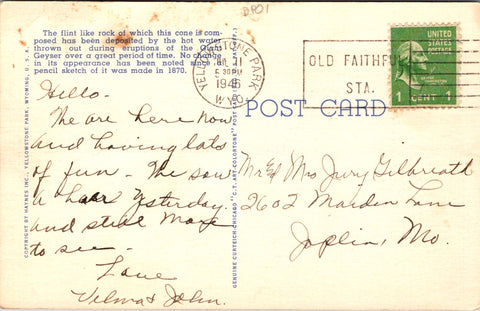 BPO1
The flint like rock of which this cone is com-
posed has been deposited by the hot water
thrown out during eruptions of the Giant
Geyser over a great period of time. No change
in its appearance has been noted since a
pencil sketch of it was made in 1870.
YELLOWSTONE PARK
JUL 11
6:30PM
1946
WYO.
OLD FAITHFUL
STA.
UNITED
STATES
POSTAGE
1 CENT 1
POST CARD
Hello-
We are here now
and having lots
of fun. We saw
a bear yesterday.
and still more
to see-
Love
Velma & John.
Mr & Mrs Jury Gilbreath
2602 Maiden Lane
Joplin, Mo.
COPYRIGHT BY HAYNES INC., YELLOWSTONE PARK, WYOMING, U.S.A.
GENUINE CURTEICH-CHICAGO "C.T. ART-COLORTONE" POST CARD